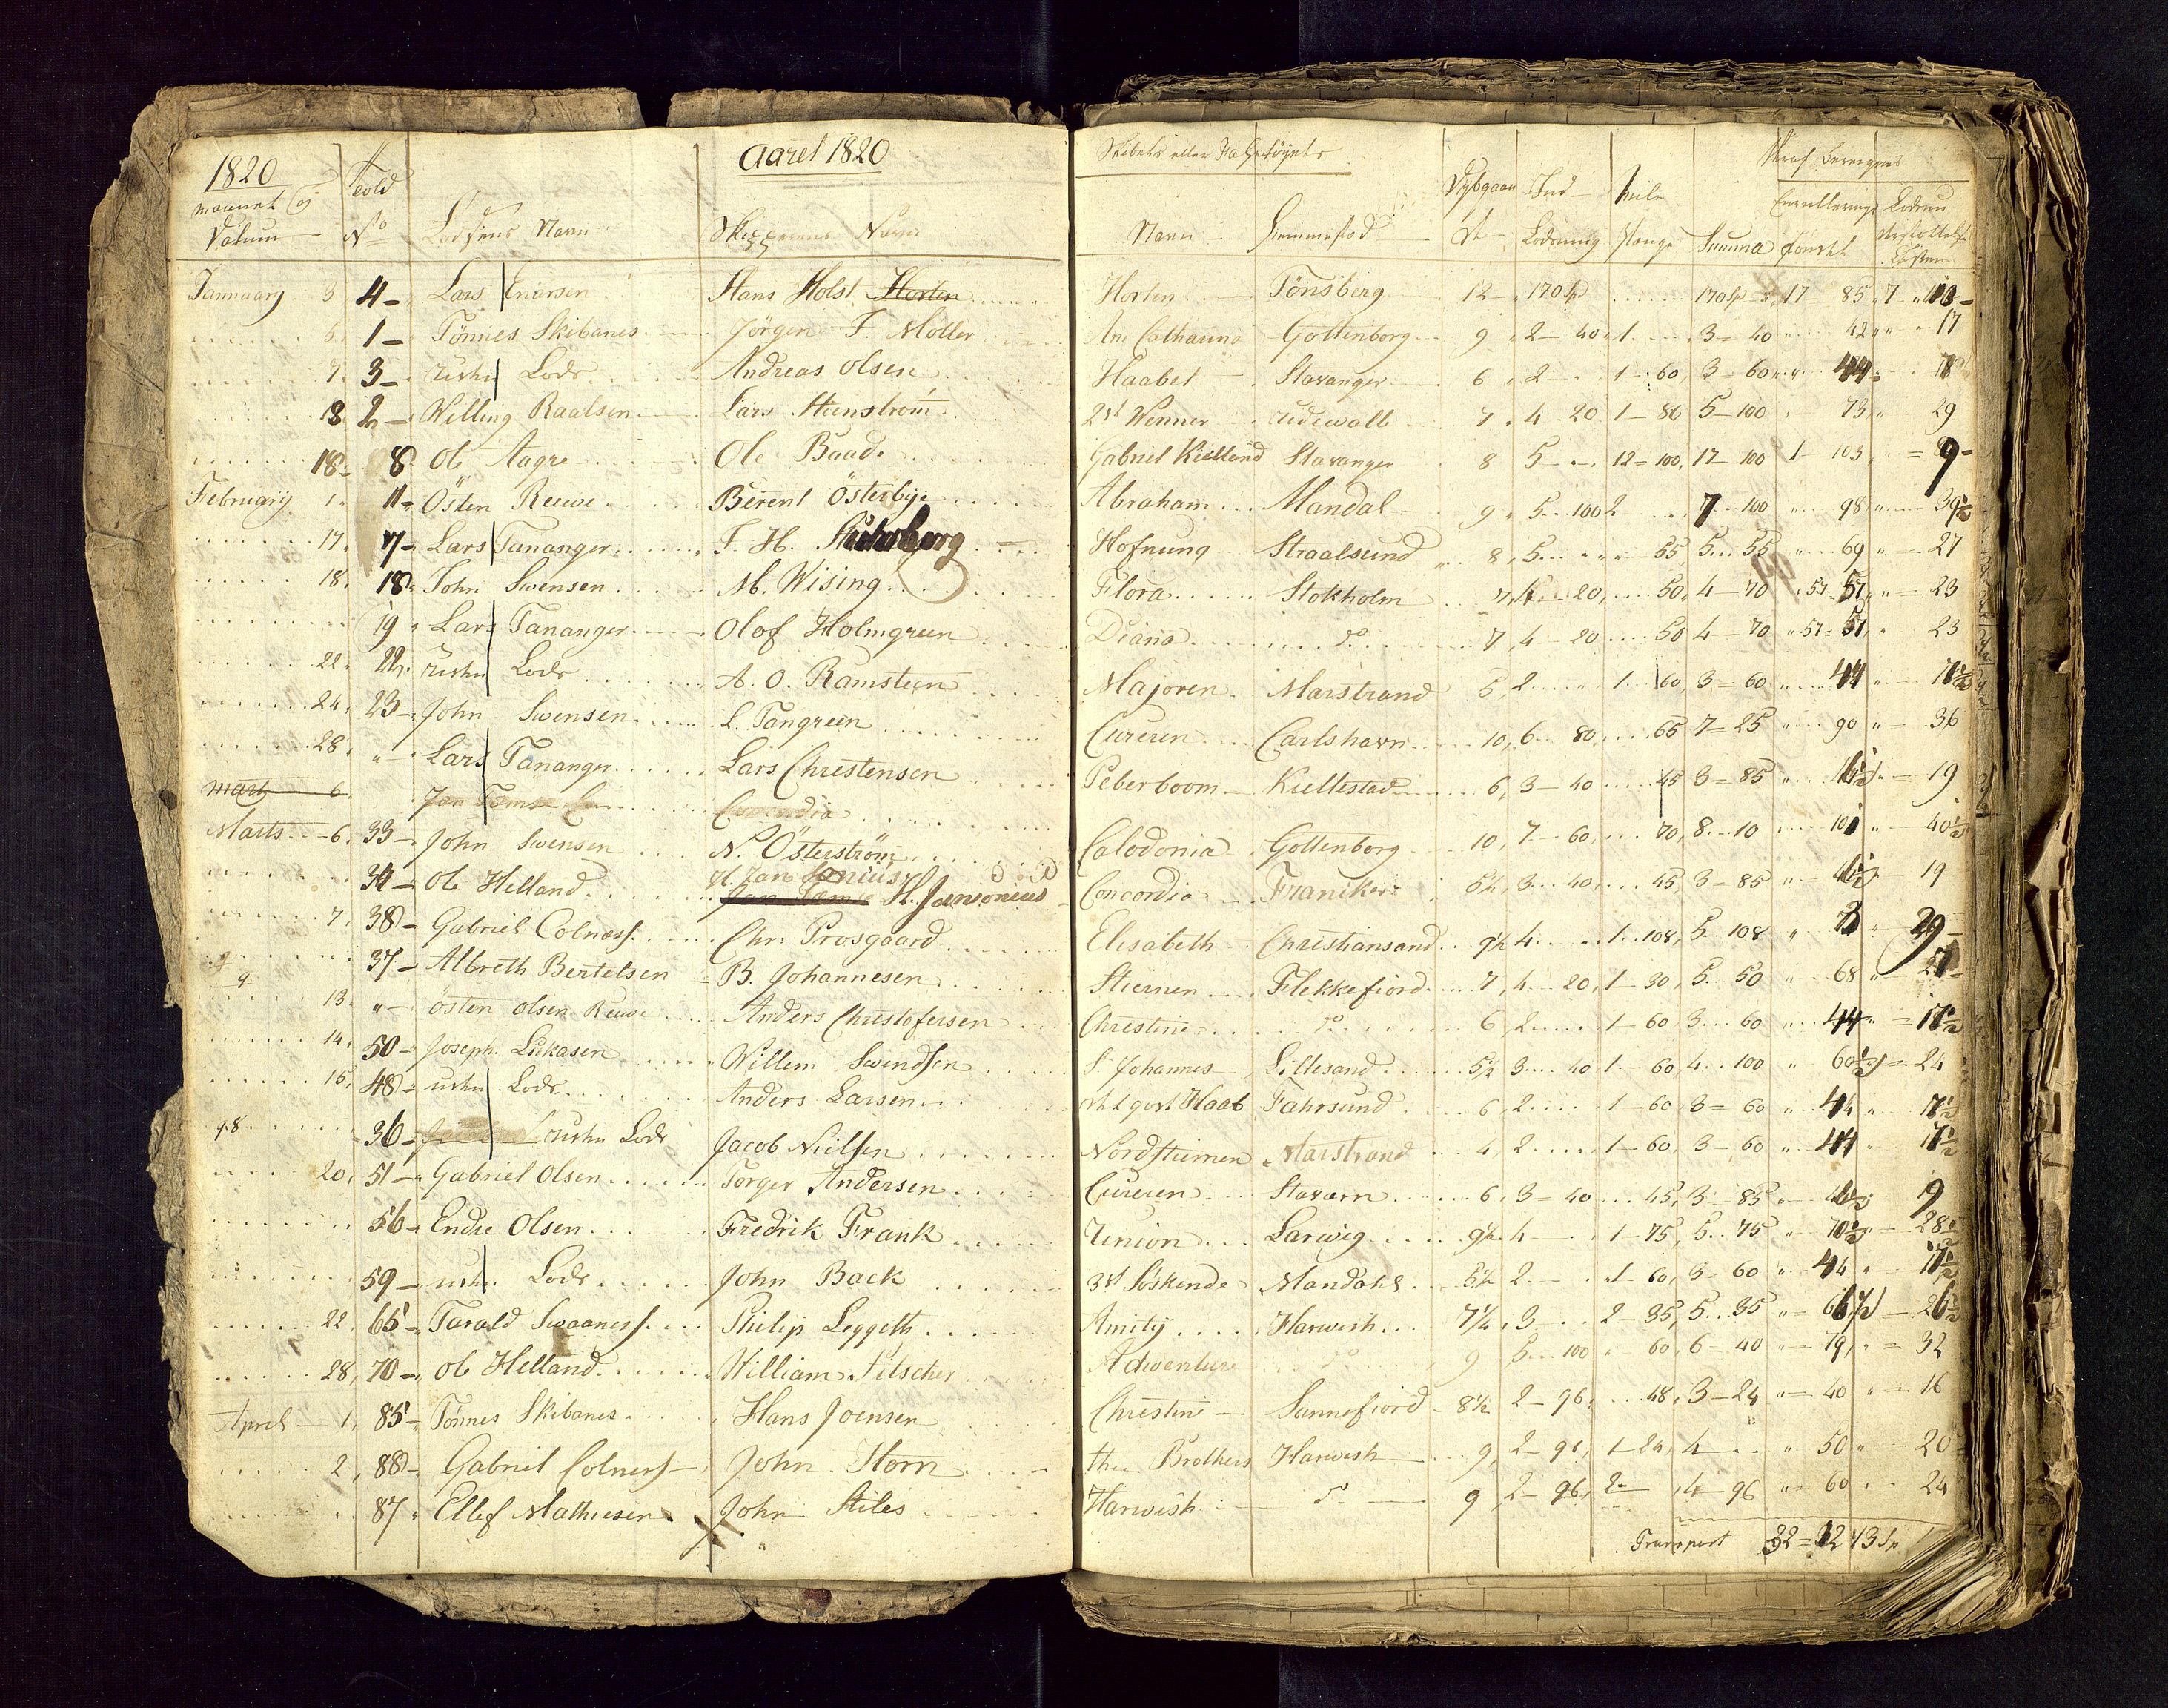 Aaret 1820
1820
maanet og
Datum
Told
No
Lodsens Navn
Skipperens Navn
January 3 4 - Lars Enersen Hans Holst Horten
5. 1 - Tönnes Skibanes Jörgen F. Möller
9. 3 - Lods Andreas Olsen
13 2 - Welling Raalsen Lars Stenström
18 - 8 Ole Aagre Ole Baade
February 1. 11 - Östen Reuwe Berent Österbye
17. 7 - Lars Tananger F. H.
18. 18 John Swensen M. Wising
19 Lars Tananger Olof Holmgreen
22. 22. Lods A. O. Ramsteen
24. 23 - John Swensen L. Tangreen
28. " Lars Tananger Lars Christensen
Marts 6 Jan Concordia
Marts - 6. 33 - John Swensen N. Österström
H. Jan
34 - Ole Helland H. Jansonius
7. 38 - Gabriel Colness. Chr. Prosgaard
9 37 - Albreth Bertelsen - B. Johannesen
13. " - Östen Olsen Reuwe Anders Christofersen
14. 50 - Joseph Lukasen Willem Swendsen
15. 48 - Lods Anders Larsen
18 36 - Lods Jacob Nielsen
20. 51 - Gabriel Olsen Torger Andersen
56 - Endre Olsen Fredrik Frank
59 - Lods John Back
22. 65 - Tarald Swaaness. Philip Leggeth
28. 70 - Ole Helland William Pitscher
April - 1. 85 - Tönnes Skibanes Hans Joensen
2. 88 - Gabriel Colness - John Horn
87 " Ellef Mathiesen John Stiles
Skibets eller Fartöyets
Navn Hiemmestad
Dybgaaende
Ind-
Lodsning
Mile
Penge
Summa
Heraf beregnes
Enrullerings
Fondet
Horten Tönsberg 12 - 170 sp 170 sp 17 85 7
An. Catharina Gottenborg 9 2 - 40 1 3 - 40 42 17
Haabet Stavanger 6 2 1 - 60 3 - 60 44
2de Venner Udewall 7 4 20 1 - 80 5 - 100 73 29
Gabriel Kielland Stavanger 8 5 12 = 100 17 - 100 1 103 9
Abraham Mandal 9 5 100 2 7 - 100 98 39½
Hofnung Straalsund 8 5 55 5 55 69 27
Flora Stokholm 7 4 20 50 4 - 70 57 57 23
Diana do 7 4 - 20 50 4 - 70 57 = 57 23
Majoren Marstrand 5 2 1 60 3 = 60 44 17½
Cureren Carlshavn 10 6 80 65 7 = 25 90 36
Peberboom Kiellestad 6 3 - 40 45 3 = 85 19
Calodonia Gottenborg 10 7 - 60 70 8 - 10 101 40½
Concordia Franiker 5½ 3 40 45 3 - 85 19
Elisabeth Christiansand 9½ 4 1 108 5 108 73 29
Stiernen Flekkefiord 7 4 20 1 - 30 5 50 68 27
Christine do 6 2 1 - 60 3 60 44 17½
St Johannes Lillesand 5½ 3 40 1 - 60 4 100 60½ 24
Haab Fahrsund 6 2 1 - 60 3 = 60 44 17½
Nordstiernen Marstrand 4 2 1 - 60 3 - 60 44 17½
Cureren Stavarn 6 3 = 40 45 3 85 19
Union Larwig 9½ 4 1 - 75 5 75 70½ 28½
3de Söskende Mandahl 5½ 2 1 60 3 - 60 44 17½
Amity Harwish 7½ 3 2 - 35 5 35 66½ 26½
Adwenture do 9 5 100 60 6 - 40 79 32
Christine Sannefiord 8½ 2 - 96 48 3 - 24 40 16
the Brothers Harwish 9 2 - 96 1 - 24 4 50 20
Harwish do 9 2 - 96 2 - 4 - 96 60 24
Transport 32 = 32 43